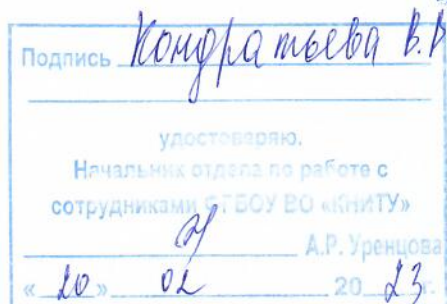 Подпись Кондратьева В.В
удостоверяю.
Начальник отдела по работе с
сотрудниками ФГБОУ ВО «КНИТУ»
А.Р. Уренцова
« 20 » 02 20 23 г.